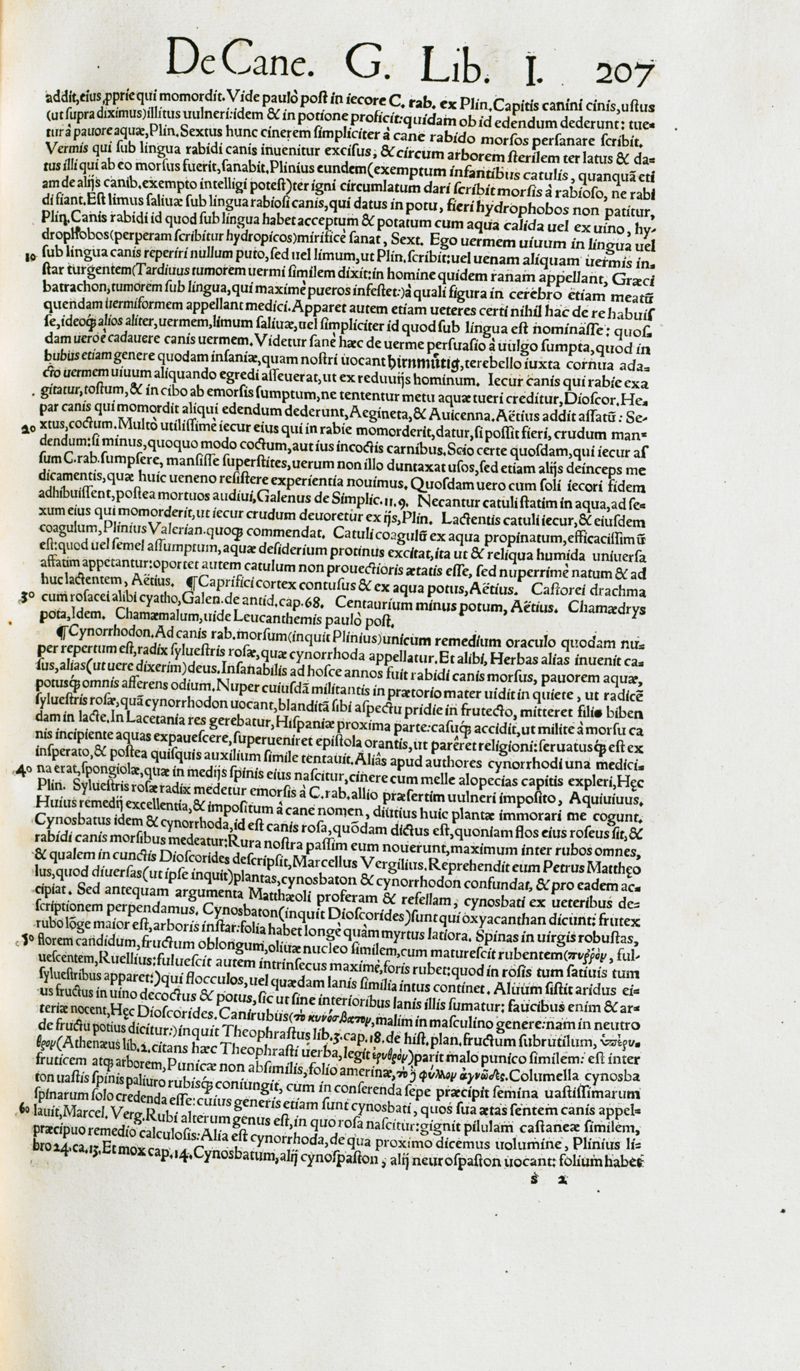 De Cane. G. Lib. I. 207
addit, eius ꝓprie qui momordit. Vide pauló pòſt in iecore C. rab. ex Plin. Capitis canini cinis, uſtus
(ut ſupra diximus) illitus uulneri: idem & in potione proficit: quidam ob id edendum dederunt: tue=
tur à pauore aquæ, Plin. Sextus hunc cinerem ſimpliciter à cane rabido morſos perſanare ſcribit.
Vermis qui ſub lingua rabidi canis inuenitur exciſus, & circum arborem ſterilem ter latus & da=
tus illi qui ab eo morſus fuerit, ſanabit, Plinius eundem (exemptum infantibus catulis, quanquã eti
am de alijs canib. exempto intelligi poteſt) ter igni circumlatum dari ſcribit morſis à rabioſo, ne rabi
di fiant. Eſt limus ſaliuæ ſub lingua rabioſi canis, qui datus in potu, fieri hydrophobos non patitur,
Plin. Canis rabidi id quod ſub lingua habet acceptum & potatum cum aqua calida uel ex uino, hy=
drophobos (perperam ſcribitur hydropicos) mirificè ſanat, Sext. Ego uermem uiuum in lingua uel
10 ſub lingua canis reperiri nullum puto, ſed uel limum, ut Plin. ſcribit: uel uenam aliquam uermis in=
ſtar turgentem (Tardiuus tumorem uermi ſimilem dixit: in homine quidem ranam appellant, Græci
batrachon, tumorem ſub lingua, qui maximè pueros infeſtet:) à quali figura in cerebro etiam meatũ
quendam uermiformem appellant medici. Apparet autem etiam ueteres certi nihil hac de re habuiſ
ſe, ideoq́; alios aliter, uermem, limum ſaliuæ, uel ſimpliciter id quod ſub lingua eſt nominaſſe: quoſ=
dam uerò e cadauere canis uermem. Videtur ſanè hæc de uerme perſuaſio à uulgo ſumpta, quod in
bubus etiam genere quodam inſaniæ, quam noſtri uocant hirnmütig, terebello iuxta cornua ada=
cto uermem uiuum aliquando egredi aſſeuerat, ut ex reduuijs hominum. Iecur canis qui rabie exa
gitatur, toſtum, & in cibo ab emorſis ſumptum, ne tententur metu aquæ tueri creditur, Dioſcor. He=
par canis qui momordit aliqui edendum dederunt, Aegineta, & Auicenna. Aëtius addit aſſatũ: Se=
20 xtus, coctum. Multò utiliſſimè iecur eius qui in rabie momorderit, datur, ſi poſſit fieri, crudum man=
dendum: ſi minus, quoquo modo coctum, aut ius incoctis carnibus. Scio certe quoſdam, qui iecur aſ
ſum C. rab. ſumpſere, manſiſſe ſuperſtites, uerum non illo duntaxat uſos, ſed etiam alijs deinceps me
dicamentis, quæ huic ueneno reſiſtere experientia nouimus. Quoſdam uero cum ſoli iecori fidem
adhibuiſſent, poſtea mortuos audiui, Galenus de Simplic. 11. 9. Necantur catuli ſtatim in aqua, ad ſe=
xum eius qui momorderit, ut iecur crudum deuoretur ex ijs, Plin. Lactentis catuli iecur, & eiuſdem
coagulum, Plinius Valerian. quoq; commendat. Catuli coagulũ ex aqua propinatum, efficaciſſimũ
eſt: quod uel ſemel aſſumptum, aquæ deſiderium protinus excitat, ita ut & reliqua humida uniuerſa
affatim appetantur: oportet autem catulum non prouectioris ætatis eſſe, ſed nuperrimè natum & ad
huc lactentem, Aëtius. ¶ Caprifici cortex contuſus & ex aqua potus, Aëtius. Caſtorei drachma
30 cum roſacei alibi cyatho, Galen. de antid. cap. 68. Centaurium minus potum, Aëtius. Chamædrys
pota, Idem. Chamæmalum, uide Leucanthemis paulò poſt.
¶ Cynorrhodon. Ad canis rab. morſum (inquit Plinius) unicum remedium oraculo quodam nu=
per repertum eſt, radix ſylueſtris roſæ, quæ cynorrhoda appellatur. Et alibi, Herbas alias inuenit ca=
ſus, alias (ut uere dixerim) deus. Inſanabilis ad hoſce annos fuit rabidi canis morſus, pauorem aquæ,
potusq́; omnis afferens odium. Nuper cuiuſdã militantis in prætorio mater uidit in quiete, ut radicẽ
ſylueſtris roſæ, quã cynorrhodon uocant, blanditã ſibi aſpectu pridie in frutecto, mitteret filio biben
dam in lacte. In Lacetania res gerebatur, Hiſpaniæ proxima parte: caſuq́; accidit, ut milite à morſu ca
nis incipiente aquas expaueſcere, ſuperueniret epiſtola orantis, ut pareret religioni: ſeruatusq́; eſt ex
inſperato, & poſtea quiſquis auxilium ſimile tentauit. Aliâs apud authores cynorrhodi una medici=
40 na erat, ſpongiolæ, quæ in medijs ſpinis eius naſcitur, cinere cum melle alopecias capitis expleri, Hęc
Plin. Sylueſtris roſæ radix medetur emorſis à C. rab. allio præſertim uulneri impoſito, Aquiuiuus.
Huius remedij excellentia, & impoſitum à cane nomen, diutius huic plantæ immorari me cogunt.
Cynosbatus idem & cynorrhoda, id eſt canis roſa, quõdam dictus eſt, quoniam flos eius roſeus ſit, &
rabidi canis morſibus medeatur: Rura noſtra paſſim eum nouerunt, maximum inter rubos omnes,
& qualem in cunctis Dioſcorides deſcripſit, Marcellus Vergilius. Reprehendit eum Petrus Matthęo
lus, quod diuerſas (ut ipſe inquit) plantas, cynosbaton & cynorrhodon confundat, & pro eadem ac=
cipiat. Sed antequam argumenta Matthæoli proferam & refellam, cynosbati ex ueteribus de=
ſcriptionem perpendamus. Cynosbaton (inquit Dioſcorides) ſunt qui oxyacanthan dicunt: frutex
rubo lõge maior eſt, arboris inſtar: folia habet longè quàm myrtus latiora. Spinas in uirgis robuſtas,
50 florem candidum, fructum oblongum, oliuæ nucleo ſimilem, cum matureſcit rubentem (πυῤῥὸν, ful=
ueſcentem, Ruellius: fulueſcit autem intrinſecus maximè, foris rubet: quod in roſis tum ſatiuis tum
ſylueſtribus apparet:) qui flocculos, uel quædam lanis ſimilia intus continet. Aluum ſiſtit aridus ei=
us fructus in uino decoctus & potus, ſic ut ſine interioribus lanis illis ſumatur: faucibus enim & ar=
teriæ nocent, Hęc Dioſcorides. Canirubus (τὸ κυνόσβατον, malim in maſculino genere: nam in neutro
de fructu potius dicitur:) inquit Theophraſtus lib. 3. cap. 18. de hiſt. plan. fructum ſubrutilum, ὑπέρυ=
θρον (Athenæus lib. 2. citans hæc Theophraſti uerba, legit ἐρυθρὸν) parit malo punico ſimilem: eſt inter
fruticem atq́; arborem, Punicæ non abſimilis, folio amerinæ, τὸ ϳ φύλλον ἀγνῶδες. Columella cynosba
ton uaſtis ſpinis paliuro rubisq́; coniungit, cum in conferenda ſepe præcipit ſemina uaſtiſſimarum
ſpinarum ſolo credenda eſſe: cuius generis etiam ſunt cynosbati, quos ſua ætas ſentem canis appel=
60 lauit, Marcel. Verg. Rubi alterum genus eſt, in quo roſa naſcitur: gignit pilulam caſtaneæ ſimilem,
præcipuo remedio calculoſis: Alia eſt cynorrhoda, de qua proximo dicemus uolumine, Plinius li=
bro 24. ca. 13. Et mox cap. 14. Cynosbatum, alij cynoſpaſton, alij neuroſpaſton uocant: folium habet
s 2